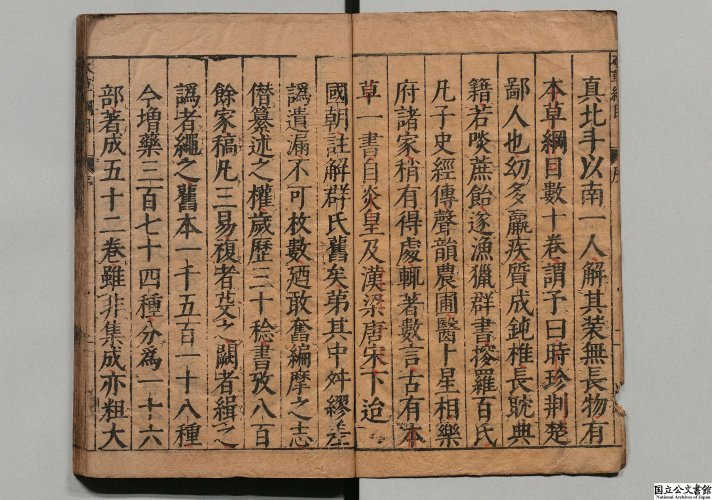 真北斗以南一人解其裝無長物有
本草綱目數十卷謂予曰時珍荆楚
鄙人也幼多羸疾質成鈍椎長耽典
籍若啖蔗飴遂漁獵群書搜羅百氏
凡子史經傳聲韻農圃醫卜星相樂
府諸家稍有得處輒著數言古有本
草一書自炎皇及漢梁唐宋下迨
國朝註解群氏舊矣第其中舛繆差
譌遺漏不可枚數廼敢奮編摩之志
僭纂述之權歲歷三十稔書攷八百
餘家稿凡三易複者芟之闕者緝之
譌者繩之舊本一千五百一十八種
今增藥三百七十四種分為一十六
部著成五十二卷雖非集成亦粗大
国立公文書館
National Archives of Japan